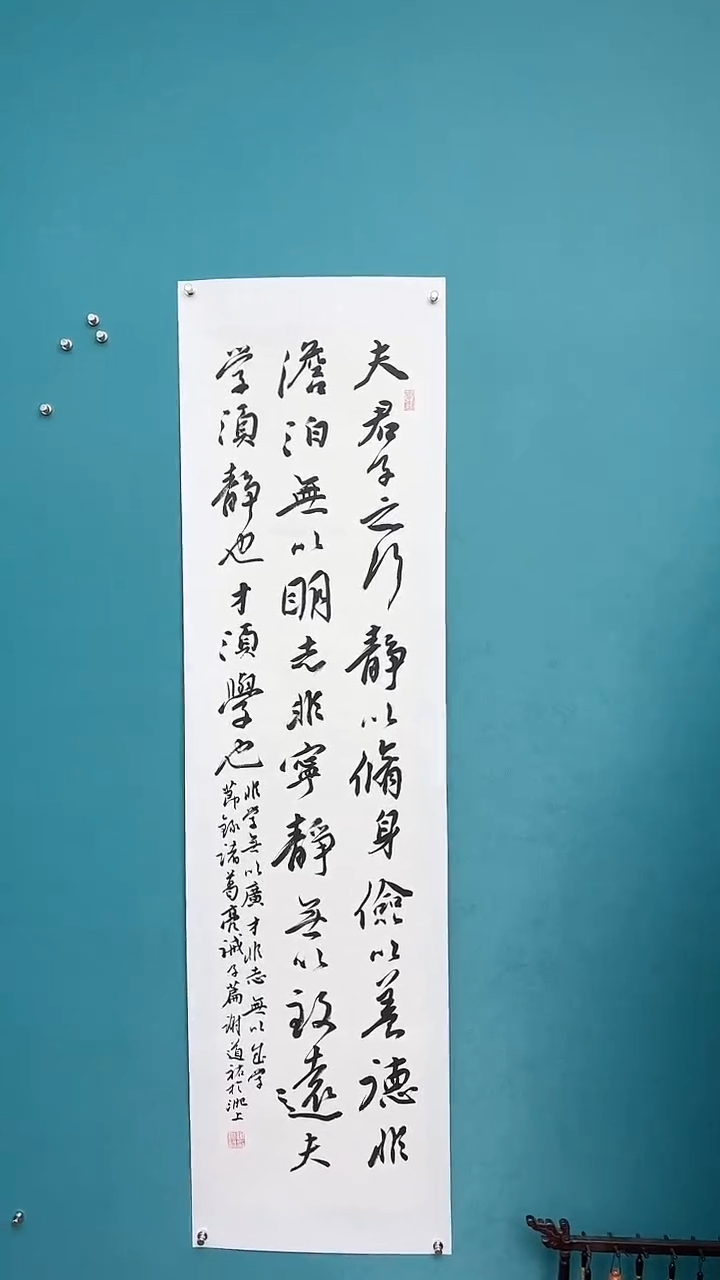 夫君子之行靜以脩身儉以養德非
澹泊無以明志非寧靜無以致遠夫
学須靜也才須學也
非学無以廣才非志無以成学
節錄諸葛亮誡子篇謝道祐於淝上